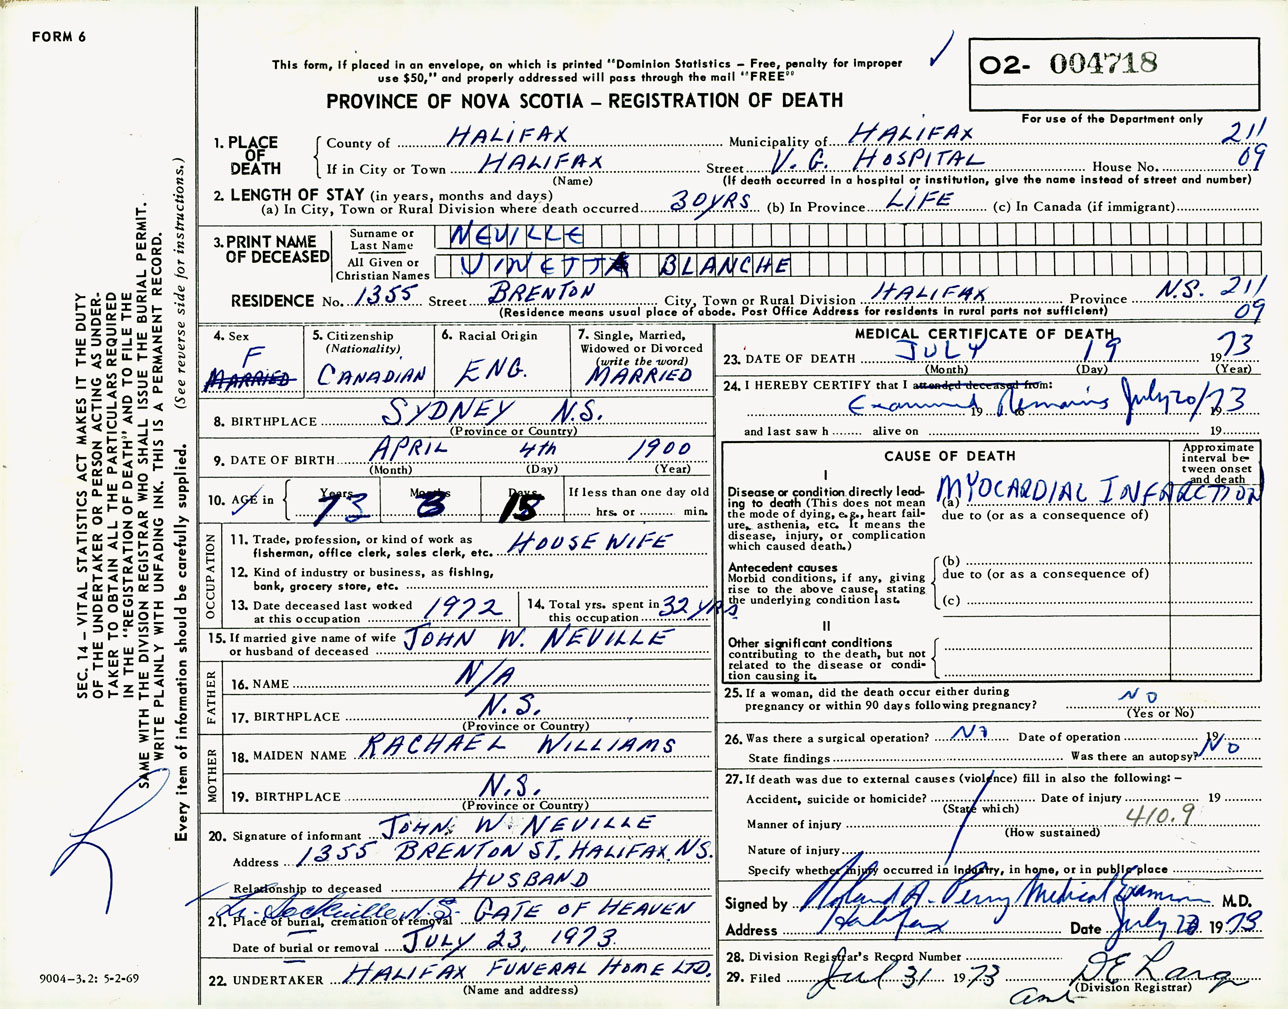 FORM 6
This form, if placed in an envelope, on which is printed "Dominion Statistics – Free, penalty for improper
use $50," and properly addressed will pass through the mail "FREE"
PROVINCE OF NOVA SCOTIA – REGISTRATION OF DEATH
O2- 004718
For use of the Department only
SEC. 14 – VITAL STATISTICS ACT MAKES IT THE DUTY
OF THE UNDERTAKER OR PERSON ACTING AS UNDER-
TAKER TO OBTAIN ALL THE PARTICULARS REQUIRED
IN THE "REGISTRATION OF DEATH" AND TO FILE THE
SAME WITH THE DIVISION REGISTRAR WHO SHALL ISSUE THE BURIAL PERMIT.
WRITE PLAINLY WITH UNFADING INK. THIS IS A PERMANENT RECORD.
Every item of information should be carefully supplied. (See reverse side for instructions.)
1. PLACE OF DEATH
County of HALIFAX Municipality of HALIFAX 211
If in City or Town HALIFAX Street V. G. HOSPITAL House No. 09
(Name) (If death occurred in a hospital or institution, give the name instead of street and number)
2. LENGTH OF STAY (in years, months and days)
(a) In City, Town or Rural Division where death occurred 30 YRS (b) In Province LIFE (c) In Canada (if immigrant)
3. PRINT NAME OF DECEASED
Surname or Last Name NEVILLE
All Given or Christian Names VINETTA BLANCHE
RESIDENCE No. 1355 Street BRENTON City, Town or Rural Division HALIFAX Province N.S. 211
(Residence means usual place of abode. Post Office Address for residents in rural parts not sufficient) 09
4. Sex F MARRIED
5. Citizenship (Nationality) CANADIAN
6. Racial Origin ENG.
7. Single, Married, Widowed or Divorced (write the word) MARRIED
8. BIRTHPLACE SYDNEY N.S.
(Province or Country)
9. DATE OF BIRTH APRIL 4th 1900
(Month) (Day) (Year)
10. AGE in Years 73 Months 3 Days 15 If less than one day old
hrs. or min.
OCCUPATION
11. Trade, profession, or kind of work as
fisherman, office clerk, sales clerk, etc. HOUSEWIFE
12. Kind of industry or business, as fishing,
bank, grocery store, etc.
13. Date deceased last worked
at this occupation 1972
14. Total yrs. spent in
this occupation 32 YRS
15. If married give name of wife
or husband of deceased JOHN W. NEVILLE
FATHER
16. NAME N/A
17. BIRTHPLACE N.S.
(Province or Country)
MOTHER
18. MAIDEN NAME RACHAEL WILLIAMS
19. BIRTHPLACE N.S.
(Province or Country)
20. Signature of informant JOHN W. NEVILLE
Address 1355 BRENTON ST. HALIFAX, N.S.
Relationship to deceased HUSBAND
21. Place of burial, cremation or removal Lr. Sackville N.S. GATE OF HEAVEN
Date of burial or removal JULY 23, 1973
22. UNDERTAKER HALIFAX FUNERAL HOME LTD.
(Name and address)
MEDICAL CERTIFICATE OF DEATH
23. DATE OF DEATH JULY 19 1973
(Month) (Day) (Year)
24. I HEREBY CERTIFY that I attended deceased from:
Examined Remains July 20/73 19 to 19
and last saw h alive on 19
CAUSE OF DEATH
Approximate interval between onset and death
I
Disease or condition directly lead-
ing to death (This does not
mean the mode of dying, e.g., heart fail-
ure, asthenia, etc. It means the
disease, injury, or complication
which caused death.)
(a) MYOCARDIAL INFARCTION
due to (or as a consequence of)
Antecedent causes
Morbid conditions, if any, giving
rise to the above cause, stating
the underlying condition last.
(b)
due to (or as a consequence of)
(c)
II
Other significant conditions
contributing to the death, but not
related to the disease or condi-
tion causing it.
25. If a woman, did the death occur either during
pregnancy or within 90 days following pregnancy? NO
(Yes or No)
26. Was there a surgical operation? No Date of operation 19
State findings Was there an autopsy? NO
27. If death was due to external causes (violence) fill in also the following: –
Accident, suicide or homicide? Date of injury 19
(State which)
Manner of injury 410.9
(How sustained)
Nature of injury
Specify whether injury occurred in Industry, in home, or in public place
Signed by Roland A. Perry Medical Examiner M.D.
Address Halifax Date July 1973
28. Division Registrar's Record Number
29. Filed Jul 31 1973 D E Lang
(Division Registrar)
9004–3.2: 5-2-69